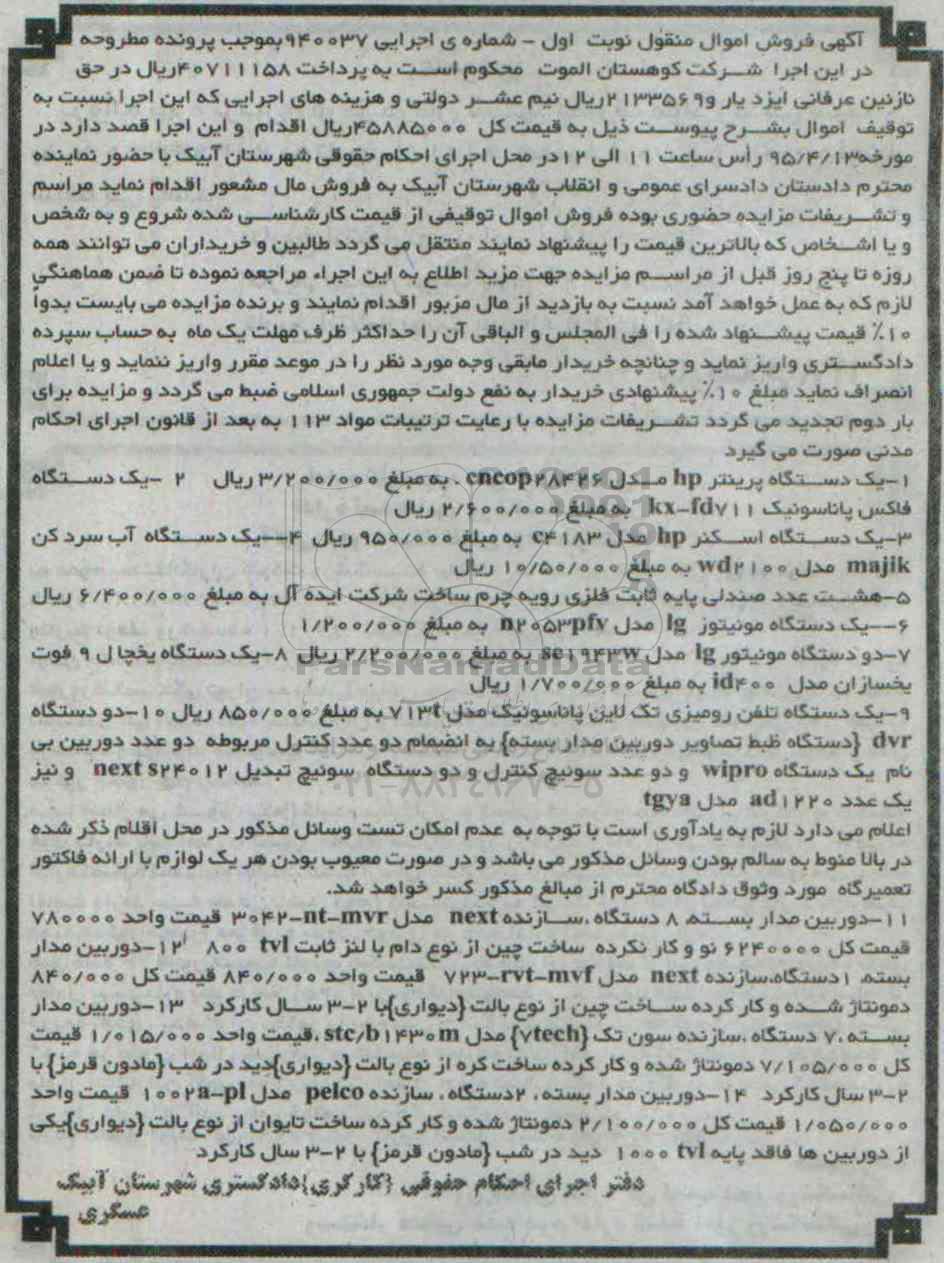 آگهی فروش اموال منقول نوبت اول - شماره ی اجرایی ۹۴۰۰۳۷بموجب پرونده مطروحه
در این اجرا شرکت کوهستان الموت محکوم است به پرداخت ۴۰۷۱۱۱۵۸ریال در حق
نازنین عرفانی ایزد یار و۲۱۳۳۵۶۹ریال نیم عشر دولتی و هزینه های اجرایی که این اجرا نسبت به
توقیف اموال بشرح پیوست ذیل به قیمت کل ۴۵۸۸۵۰۰۰ریال اقدام و این اجرا قصد دارد در
مورخه۹۵/۴/۱۳ رأس ساعت ۱۱ الی ۱۲در محل اجرای احکام حقوقی شهرستان آبیک با حضور نماینده
محترم دادستان دادسرای عمومی و انقلاب شهرستان آبیک به فروش مال مشعور اقدام نماید مراسم
و تشریفات مزایده حضوری بوده فروش اموال توقیفی از قیمت کارشناسی شده شروع و به شخص
و یا اشخاص که بالاترین قیمت را پیشنهاد نمایند منتقل می گردد طالبین و خریداران می توانند همه
روزه تا پنج روز قبل از مراسم مزایده جهت مزید اطلاع به این اجراء مراجعه نموده تا ضمن هماهنگی
لازم که به عمل خواهد آمد نسبت به بازدید از مال مزبور اقدام نمایند و برنده مزایده می بایست بدواً
۱۰٪ قیمت پیشنهاد شده را فی المجلس و الباقی آن را حداکثر ظرف مهلت یک ماه به حساب سپرده
دادگستری واریز نماید و چنانچه خریدار مابقی وجه مورد نظر را در موعد مقرر واریز ننماید و یا اعلام
انصراف نماید مبلغ ۱۰٪ پیشنهادی خریدار به نفع دولت جمهوری اسلامی ضبط می گردد و مزایده برای
بار دوم تجدید می گردد تشریفات مزایده با رعایت ترتیبات مواد ۱۱۳ به بعد از قانون اجرای احکام
مدنی صورت می گیرد
۱-یک دستگاه پرینتر hp مدل cncop۲۸۴۲۶ . به مبلغ ۳/۲۰۰/۰۰۰ ریال ۲ -یک دستگاه
فاکس پاناسونیک kx-fd۷۱۱ به مبلغ ۲/۶۰۰/۰۰۰ ریال
۳-یک دستگاه اسکنر hp مدل c۴۱۸۳ به مبلغ ۹۵۰/۰۰۰ ریال ۴--یک دستگاه آب سرد کن
majik مدل wd۲۱۰۰ به مبلغ ۱۰/۵۰/۰۰۰ ریال
۵-هشت عدد صندلی پایه ثابت فلزی رویه چرم ساخت شرکت ایده آل به مبلغ ۶/۴۰۰/۰۰۰ ریال
۶--یک دستگاه مونیتوز lg مدل n۲۰۵۳pfv به مبلغ ۱/۲۰۰/۰۰۰
۷-دو دستگاه مونیتور lg مدل se۱۹۴۳w به مبلغ ۲/۲۰۰/۰۰۰ ریال ۸-یک دستگاه یخچال ۹ فوت
یخسازان مدل id۴۰۰ به مبلغ ۱/۷۰۰/۰۰۰ ریال
۹-یک دستگاه تلفن رومیزی تک لاین پاناسونیک مدل ۷۱۳t به مبلغ ۸۵۰/۰۰۰ ریال ۱۰-دو دستگاه
dvr {دستگاه ظبط تصاویر دوربین مدار بسته} به انضمام دو عدد کنترل مربوطه دو عدد دوربین بی
نام یک دستگاه wipro و دو عدد سوئیچ کنترل و دو دستگاه سوئیچ تبدیل next s۲۴۰۱۲ و نیز
یک عدد ad۱۲۲۰ مدل tgya
اعلام می دارد لازم به یادآوری است با توجه به عدم امکان تست وسائل مذکور در محل اقلام ذکر شده
در بالا منوط به سالم بودن وسائل مذکور می باشد و در صورت معیوب بودن هر یک لوازم با ارائه فاکتور
تعمیرگاه مورد وثوق دادگاه محترم از مبالغ مذکور کسر خواهد شد.
۱۱-دوربین مدار بسته، ۸ دستگاه ،سازنده next مدل ۳۰۴۲-nt-mvr قیمت واحد ۷۸۰۰۰۰
قیمت کل ۶۲۴۰۰۰۰ نو و کار نکرده ساخت چین از نوع دام با لنز ثابت ۸۰۰ tvl ۱۲-دوربین مدار
بسته، ۱دستگاه،سازنده next مدل ۷۲۳-rvt-mvf قیمت واحد ۸۴۰/۰۰۰ قیمت کل ۸۴۰/۰۰۰
دمونتاژ شده و کار کرده ساخت چین از نوع بالت {دیواری}با ۲-۳ سال کارکرد ۱۳-دوربین مدار
بسته ،۷ دستگاه ،سازنده سون تک {۷tech} مدل stc/b۱۴۳۰m ،قیمت واحد ۱/۰۱۵/۰۰۰ قیمت
کل ۷/۱۰۵/۰۰۰ دمونتاژ شده و کار کرده ساخت کره از نوع بالت {دیواری}دید در شب {مادون قرمز} با
۲-۳ سال کارکرد ۱۴-دوربین مدار بسته ، ۲دستگاه ، سازنده pelco مدل ۱۰۰۲a-pl قیمت واحد
۱/۰۵۰/۰۰۰ قیمت کل ۲/۱۰۰/۰۰۰ دمونتاژ شده و کار کرده ساخت تایوان از نوع بالت {دیواری}یکی
از دوربین ها فاقد پایه ۱۰۰۰ tvl دید در شب {مادون قرمز} با ۲-۳ سال کارکرد
دفتر اجرای احکام حقوقی {کارگری}دادگستری شهرستان آبیک
عسگری
ParsNamadData
۰۲۱-۸۸۳۴۹۶۷۰-۵